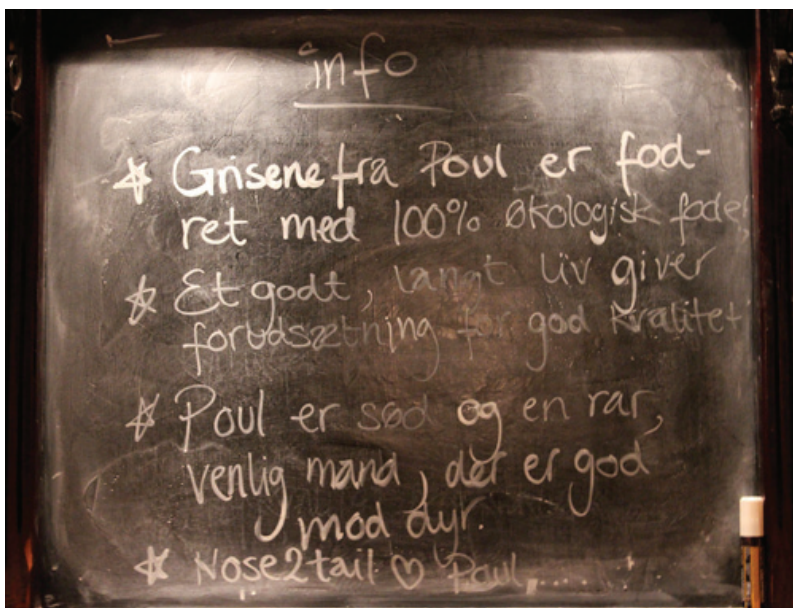 info
☆ Grisene fra Poul er fod-
ret med 100% økologisk foder
☆ Et godt, langt liv giver
forudsætning for god kvalitet
☆ Poul er sød og en rar,
venlig mand, der er god
mod dyr.
☆ Nose2tail ♡ Poul....